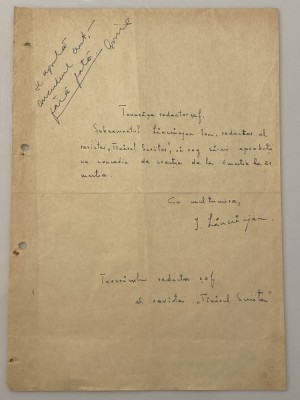 se aprobă
concediul ant,
fără plată
Tovarășe redactor șef,
Subsemnatul Lăncrănjan Ion, redactor al
revistei „Tînărul Scriitor”, vă rog să-mi aprobați
un concediu de creație de la 6 martie la 21
martie.
Cu mulțumire,
I. Lăncrănjan.
Tovarășului redactor șef
al revistei „Tînărul Scriitor”